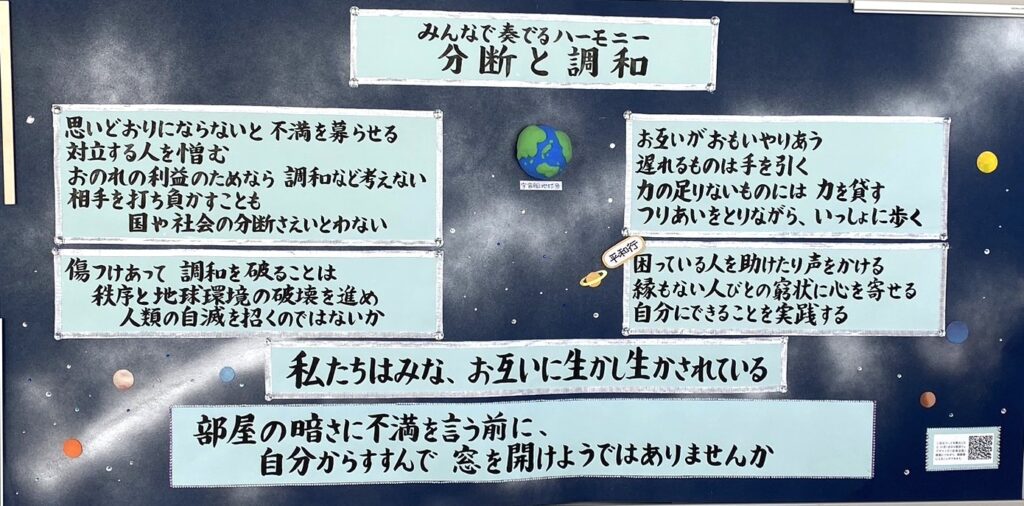 みんなで奏でるハーモニー
分断と調和
思いどおりにならないと 不満を募らせる
対立する人を憎む
おのれの利益のためなら 調和など考えない
相手を打ち負かすことも
国や社会の分断さえいとわない
傷つけあって 調和を破ることは
秩序と地球環境の破壊を進め
人類の自滅を招くのではないか
宇宙船地球号
平和行
お互いがおもいやりあう
遅れるものは手を引く
力の足りないものには 力を貸す
つりあいをとりながら、いっしょに歩く
困っている人を助けたり声をかける
縁もない人びとの窮状に心を寄せる
自分にできることを実践する
私たちはみな、お互いに生かし生かされている
部屋の暗さに不満を言う前に、
自分からすすんで 窓を開けようではありませんか